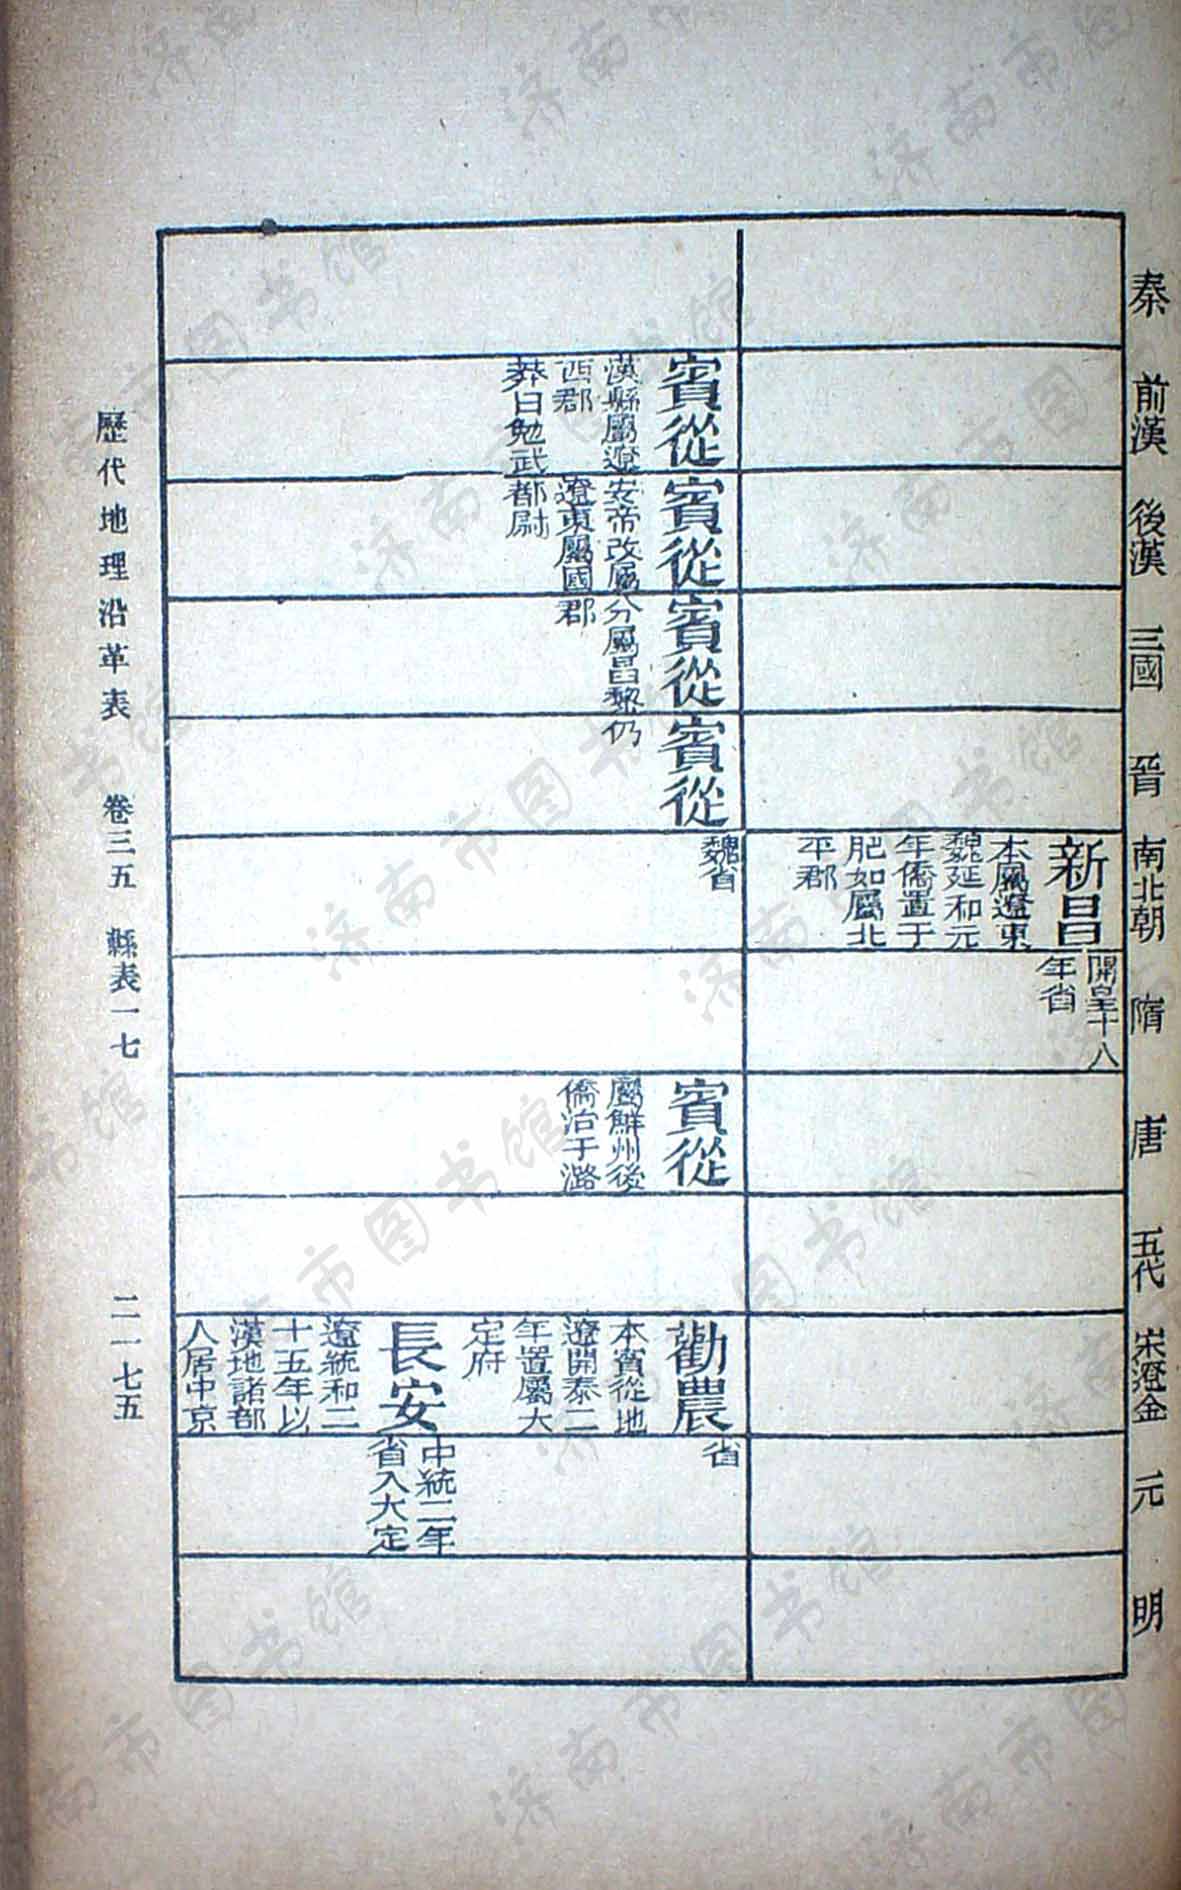 秦
前漢
後漢
三國
晉
南北朝
隋
唐
五代
宋遼金
元
明
新昌
本屬遼東
魏延和元
年僑置于
肥如屬北
平郡
開皇十八
年省
賓從
漢縣屬遼
西郡
莽曰勉武
賓從
安帝改屬
遼東屬國
都尉
賓從
分屬昌黎
郡
賓從
仍
魏省
賓從
屬鮮州後
僑治于潞
勸農
本賓從地
遼開泰二
年置屬大
定府
長安
遼統和二
十五年以
漢地諸部
人居中京
省
中統二年
省入大定
歷代地理沿革表 卷三五 縣表一七 二一七五
济南市图书馆